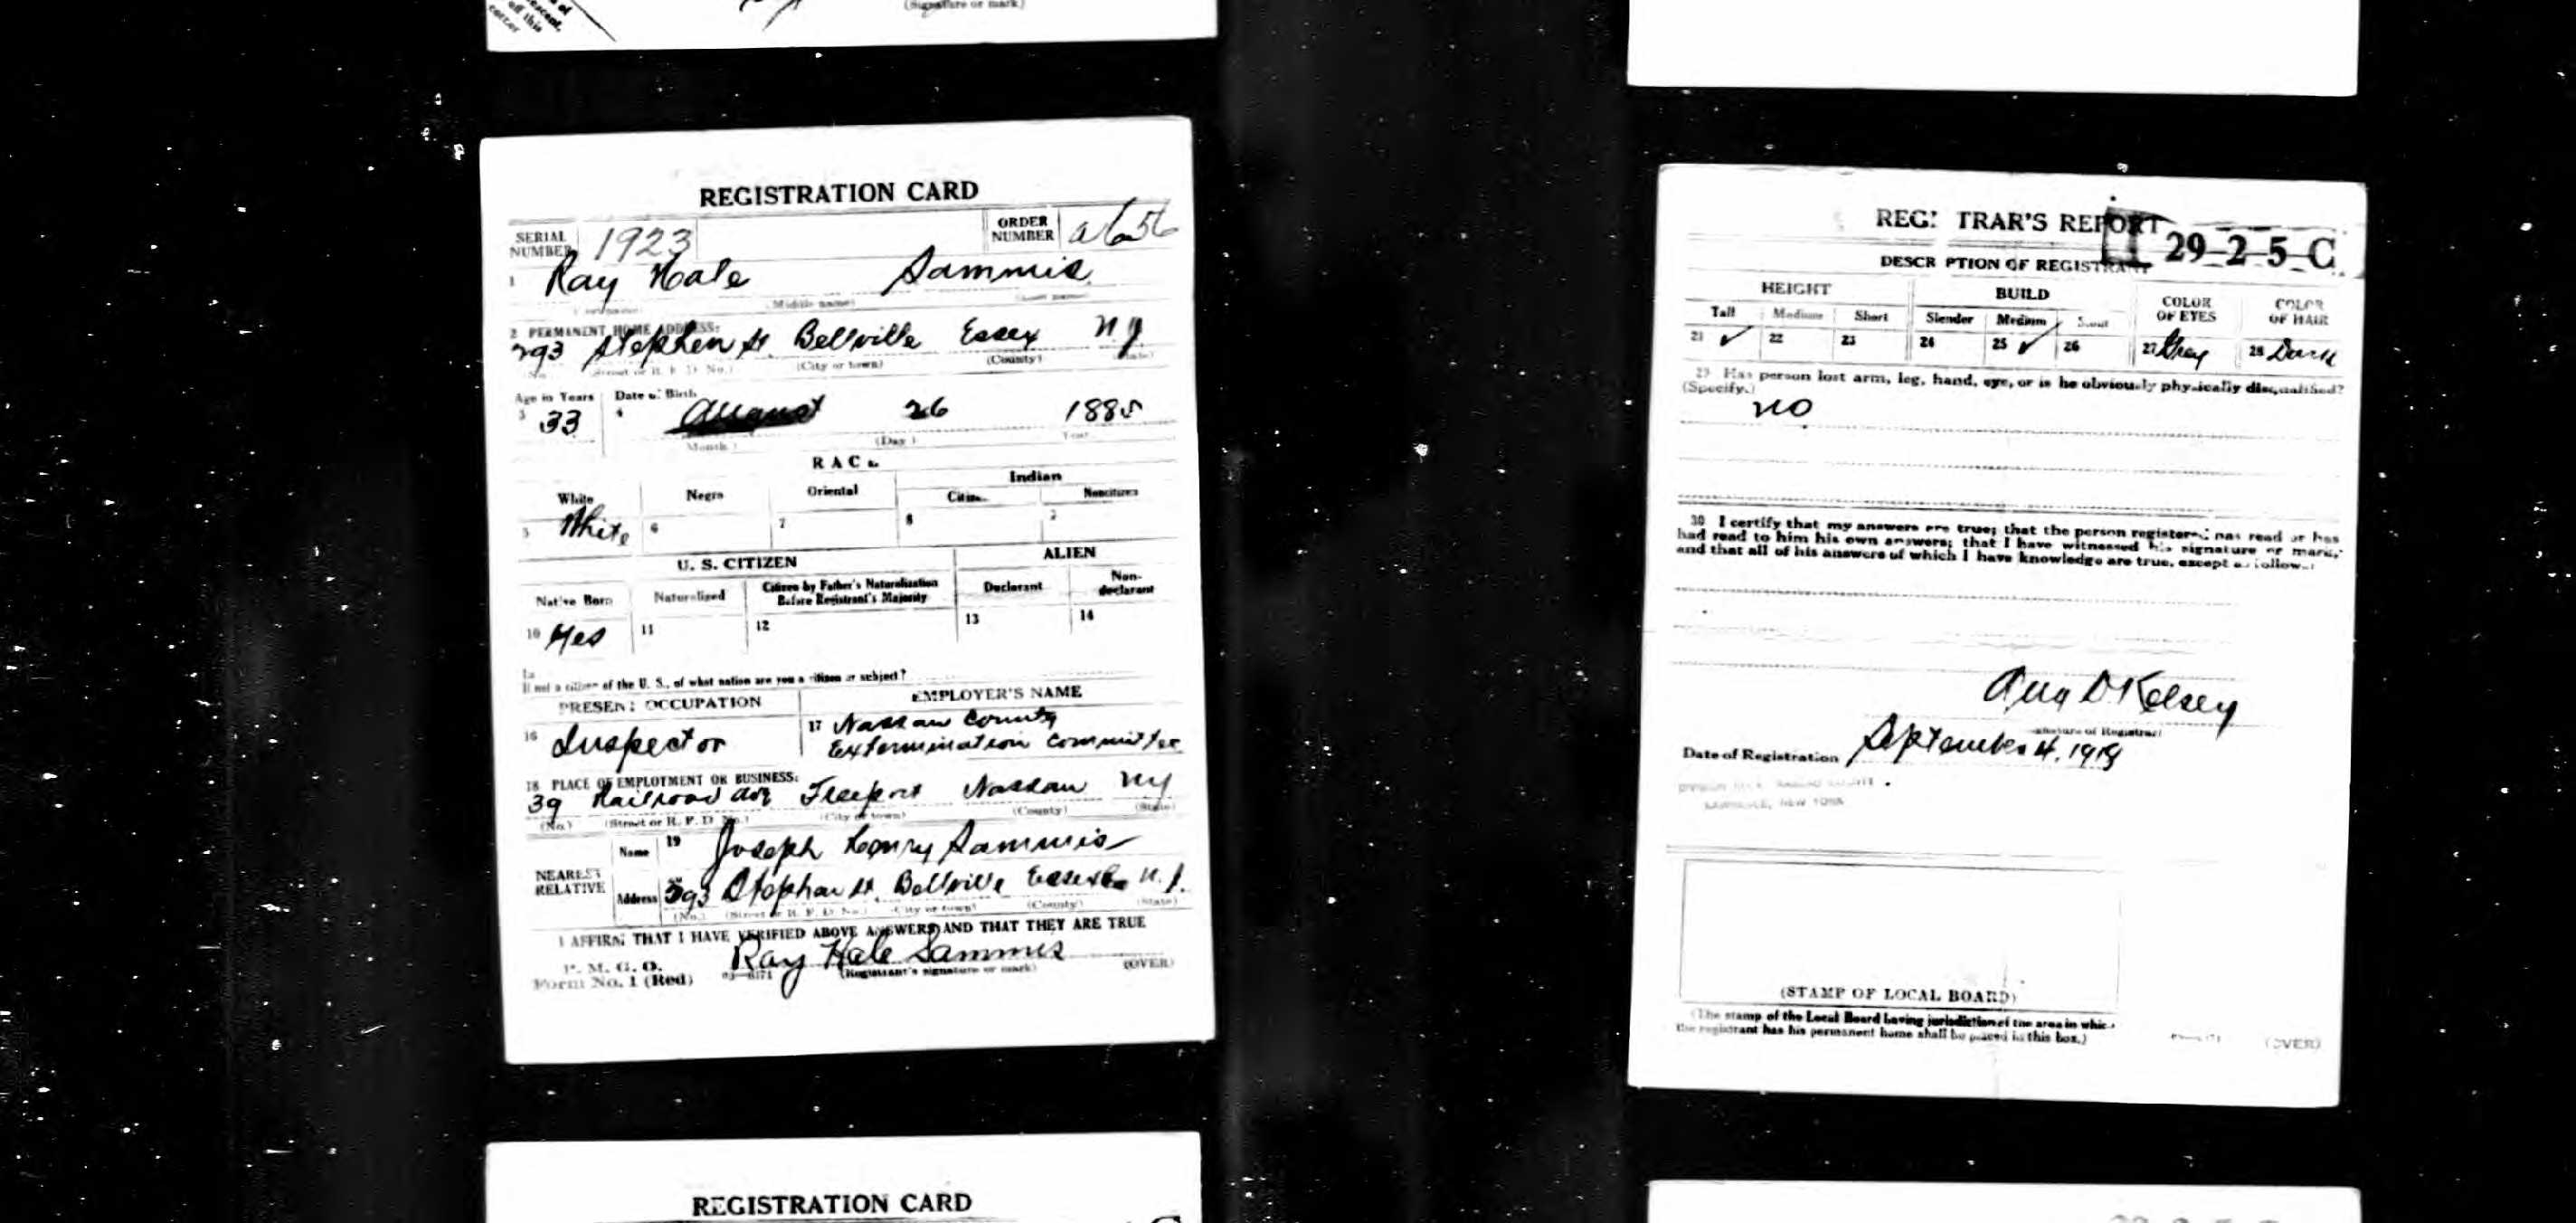 (Signature or mark)
of
off this
corner
REGISTRATION CARD
SERIAL NUMBER 1923 ORDER NUMBER a656
1 Ray Hale Sammis
(Middle name)
2 PERMANENT HOME ADDRESS:
293 Stephen St. Bellville Essex N.J.
(City or town) (County) (State)
Age in Years Date of Birth
3 33 4 August 26 1885
(Month) (Day) Year
RACE
White Negro Oriental Indian
Citizen Noncitizen
5 White 6 7 8
U. S. CITIZEN ALIEN
Native Born Naturalized Citizen by Father's Naturalization Before Registrant's Majority Declarant Non-declarant
10 Yes 11 12 13 14
If not a citizen of the U. S., of what nation are you a citizen or subject?
PRESENT OCCUPATION EMPLOYER'S NAME
16 Inspector 17 Nassau County
Extermination Committee
18 PLACE OF EMPLOYMENT OR BUSINESS:
39 Railroad Ave Freeport Nassau NY
(No.) (Street or R. F. D. No.) (City or town) (County) (State)
NEAREST RELATIVE Name 19 Joseph Henry Sammis
Address 393 Stephen St Bellville Essex N.J.
(No.) (Street or R. F. D. No.) (City or town) (County) (State)
I AFFIRM THAT I HAVE VERIFIED ABOVE ANSWERS AND THAT THEY ARE TRUE
P. M. G. O.
Form No. 1 (Red) Ray Hale Sammis
(Registrant's signature or mark) (OVER)
REGISTRATION CARD
REGISTRAR'S REPORT
29-2-5-C
DESCRIPTION OF REGISTRANT
HEIGHT BUILD COLOR OF EYES COLOR OF HAIR
Tall Medium Short Slender Medium Stout
21 ✓ 22 23 24 25 ✓ 26 27 Gray 28 Dark
29 Has person lost arm, leg, hand, eye, or is he obviously physically disqualified?
(Specify.)
no
30 I certify that my answers are true; that the person registered has read or has
had read to him his own answers; that I have witnessed his signature or mark,
and that all of his answers of which I have knowledge are true, except as follows:
Aug D Kelsey
Signature of Registrar
Date of Registration September 4, 1918
NEW YORK
(STAMP OF LOCAL BOARD)
(The stamp of the Local Board having jurisdiction of the area in which
the registrant has his permanent home shall be placed in this box.)
(OVER)